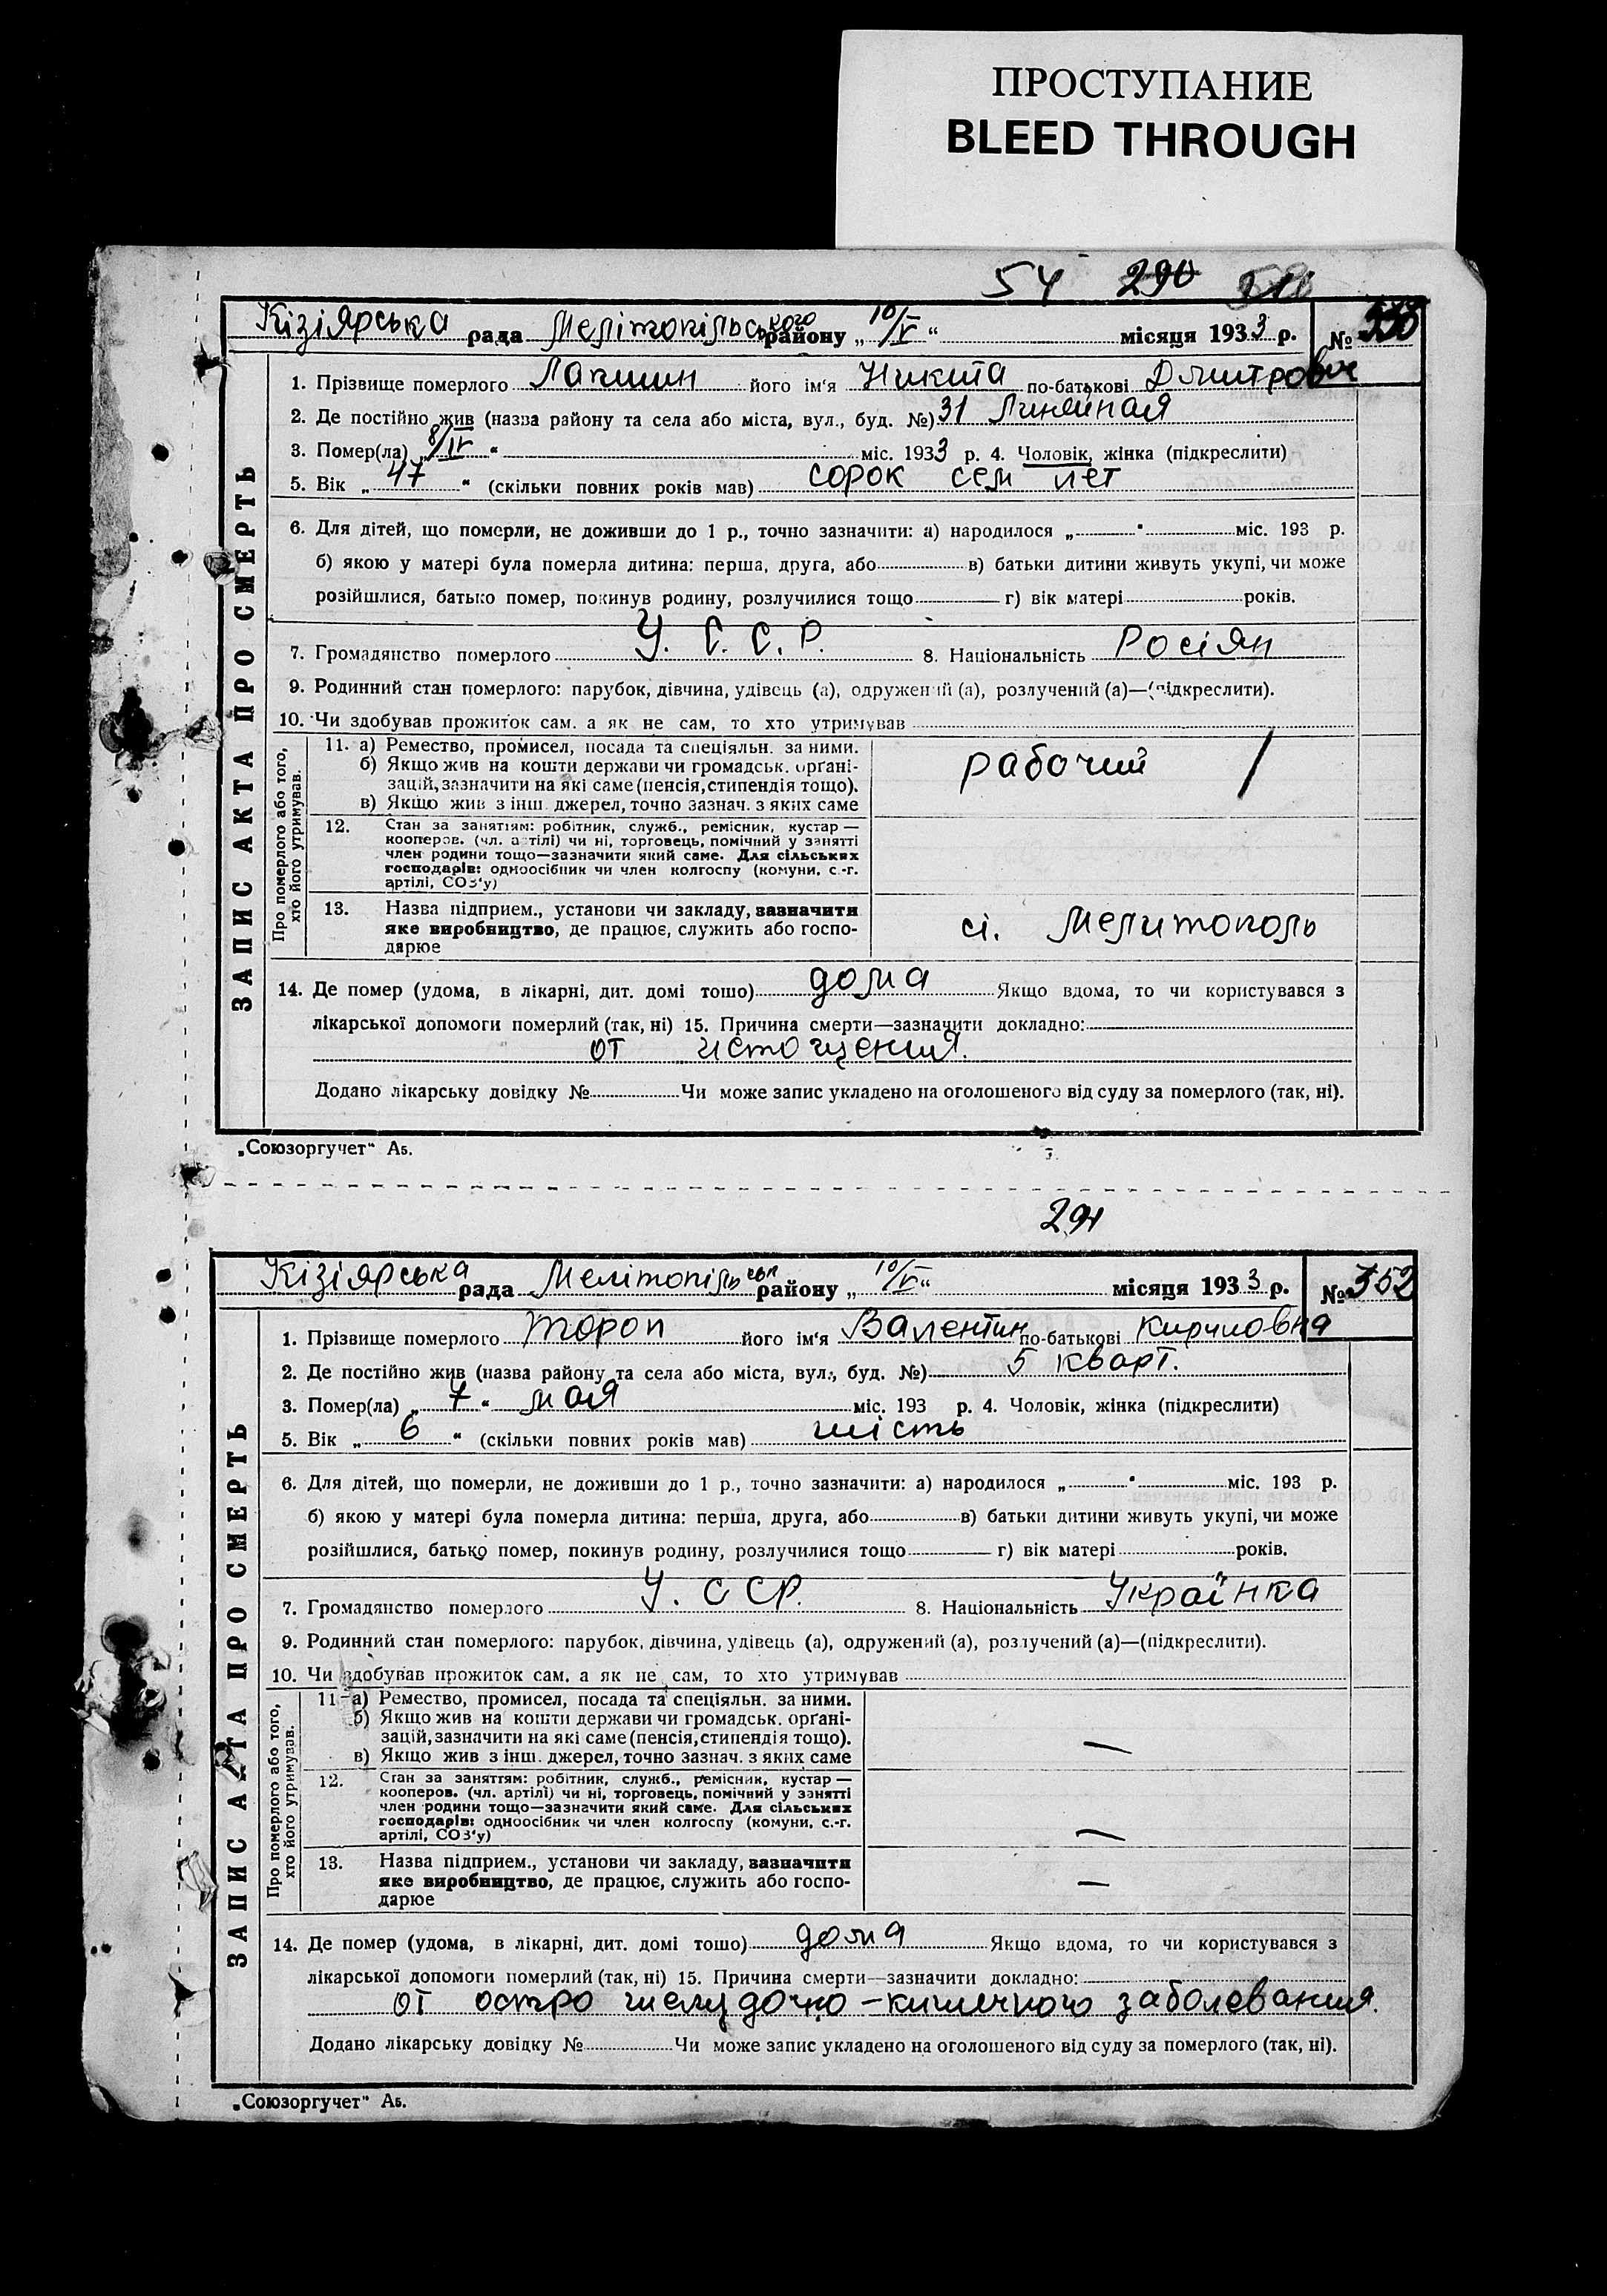 ПРОСТУПАНИЕ
BLEED THROUGH
54 290
Кізіярська рада Мелітопільського району „10/V“ місяця 1933 р. №
1. Прізвище померлого Лапшин його ім'я Никита по-батькові Дмитрович
2. Де постійно жив (назва району та села або міста, вул., буд. №) 31 Линейная
3. Помер(ла) „8/IV“ міс. 1933 р. 4. Чоловік, жінка (підкреслити)
5. Вік „47“ (скільки повних років мав) сорок сем лет
6. Для дітей, що померли, не доживши до 1 р., точно зазначити: а) народилося „ “ міс. 193 р.
б) якою у матері була померла дитина: перша, друга, або в) батьки дитини живуть укупі, чи може
розійшлися, батько помер, покинув родину, розлучилися тощо г) вік матері років.
7. Громадянство померлого У. С. С. Р. 8. Національність Росіян
9. Родинний стан померлого: парубок, дівчина, удівець (а), одружений (а), розлучений (а)—(підкреслити).
10. Чи здобував прожиток сам. а як не сам, то хто утримував
ЗАПИС АКТА ПРО СМЕРТЬ
Про померлого або того,
хто його утримував.
11. а) Ремество, промисел, посада та спеціяльн. за ними.
б) Якщо жив на кошти держави чи громадськ. орґані-
зацій, зазначити на які саме (пенсія, стипендія тощо).
в) Якщо жив з інш. джерел, точно зазнач. з яких саме
рабочий
12. Стан за заняттям: робітник, служб., ремісник, кустар—
кооперов. (чл. артілі) чи ні, торговець, помічний у занятті
член родини тощо—зазначити який саме. Для сільських
господарів: одноосібник чи член колгоспу (комуни, с.-г.
артілі, СОЗ'у)
13. Назва підприєм., установи чи закладу, зазначити
яке виробництво, де працює, служить або госпо-
дарює
сі. Мелитополь
14. Де помер (удома, в лікарні, дит. домі тошо) дома Якщо вдома, то чи користувався з
лікарської допомоги померлий (так, ні) 15. Причина смерти—зазначити докладно:
от истощения.
Додано лікарську довідку № Чи може запис укладено на оголошеного від суду за померлого (так, ні).
„Союзоргучет“ Аб.
291
Кізіярська рада Мелітопільськ району „10/V“ місяця 1933 р. № 352
1. Прізвище померлого Тороп його ім'я Валентин по-батькові Кириловна
2. Де постійно жив (назва району та села або міста, вул., буд. №) 5 кварт.
3. Помер(ла) „7“ мая міс. 193 р. 4. Чоловік, жінка (підкреслити)
5. Вік „6“ (скільки повних років мав) шість
6. Для дітей, що померли, не доживши до 1 р., точно зазначити: а) народилося „ “ міс. 193 р.
б) якою у матері була померла дитина: перша, друга, або в) батьки дитини живуть укупі, чи може
розійшлися, батько помер, покинув родину, розлучилися тощо г) вік матері років.
7. Громадянство померлого У. С СР. 8. Національність Українка
9. Родинний стан померлого: парубок, дівчина, удівець (а), одружений (а), розлучений (а)—(підкреслити).
10. Чи здобував прожиток сам. а як не сам, то хто утримував
ЗАПИС АКТА ПРО СМЕРТЬ
Про померлого або того,
хто його утримував.
11 а) Ремество, промисел, посада та спеціяльн. за ними.
б) Якщо жив на кошти держави чи громадськ. орґані-
зацій, зазначити на які саме (пенсія, стипендія тощо).
в) Якщо жив з інш. джерел, точно зазнач. з яких саме
—
12. Стан за заняттям: робітник, служб., ремісник, кустар—
кооперов. (чл. артілі) чи ні, торговець, помічний у занятті
член родини тощо—зазначити який саме. Для сільських
господарів: одноосібник чи член колгоспу (комуни, с.-г.
артілі, СОЗ'у)
—
13. Назва підприєм., установи чи закладу, зазначити
яке виробництво, де працює, служить або госпо-
дарює
—
14. Де помер (удома, в лікарні, дит. домі тошо) дома Якщо вдома, то чи користувався з
лікарської допомоги померлий (так, ні) 15. Причина смерти—зазначити докладно:
от остро желудочно-кишечного заболевания.
Додано лікарську довідку № Чи може запис укладено на оголошеного від суду за померлого (так, ні).
„Союзоргучет“ Аб.